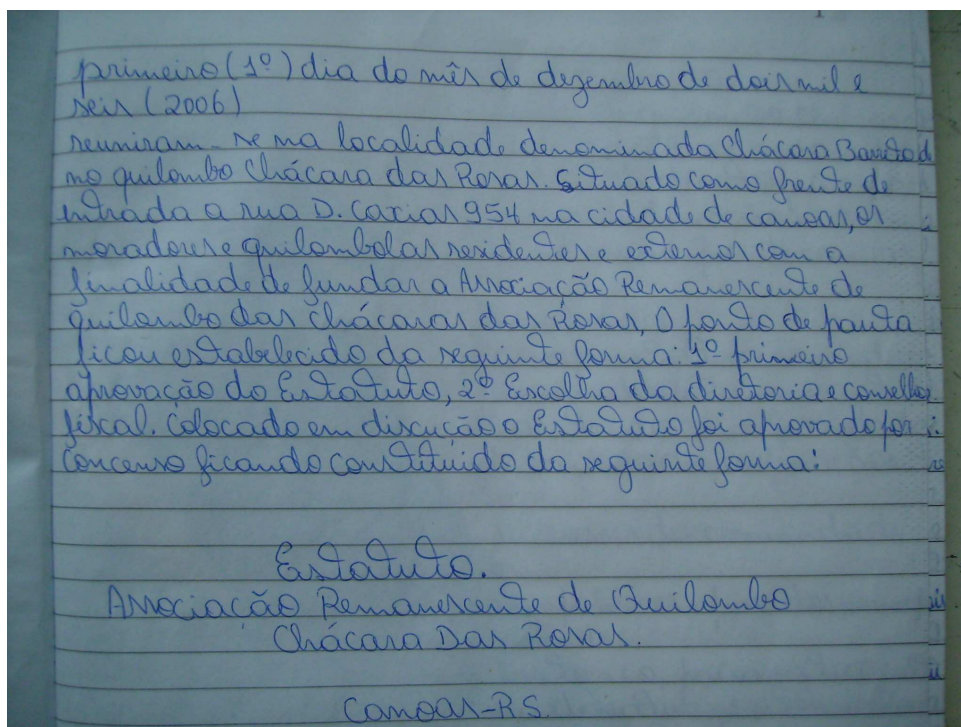 primeiro (1º) dia do mês de dezembro de dois mil e
seis (2006)
reuniram-se na localidade denominada Chácara Barreto
no quilombo Chácara das Rosas. Situado como frente de
entrada a rua D. Caxias 954 na cidade de canoas, os
moradores e quilombolas residentes e externos com a
finalidade de fundar a Associação Remanescente de
quilombo das chácaras das Rosas, O ponto de pauta
ficou estabelecido da seguinte forma: 1º primeiro
aprovação do Estatuto, 2º Escolha da diretoria e conselho
fiscal. Colocado em discução o Estatuto foi aprovado por
concenso ficando constituido da seguinte forma:
Estatuto.
Associação Remanescente de Quilombo
Chácara Das Rosas.
Canoas-RS.